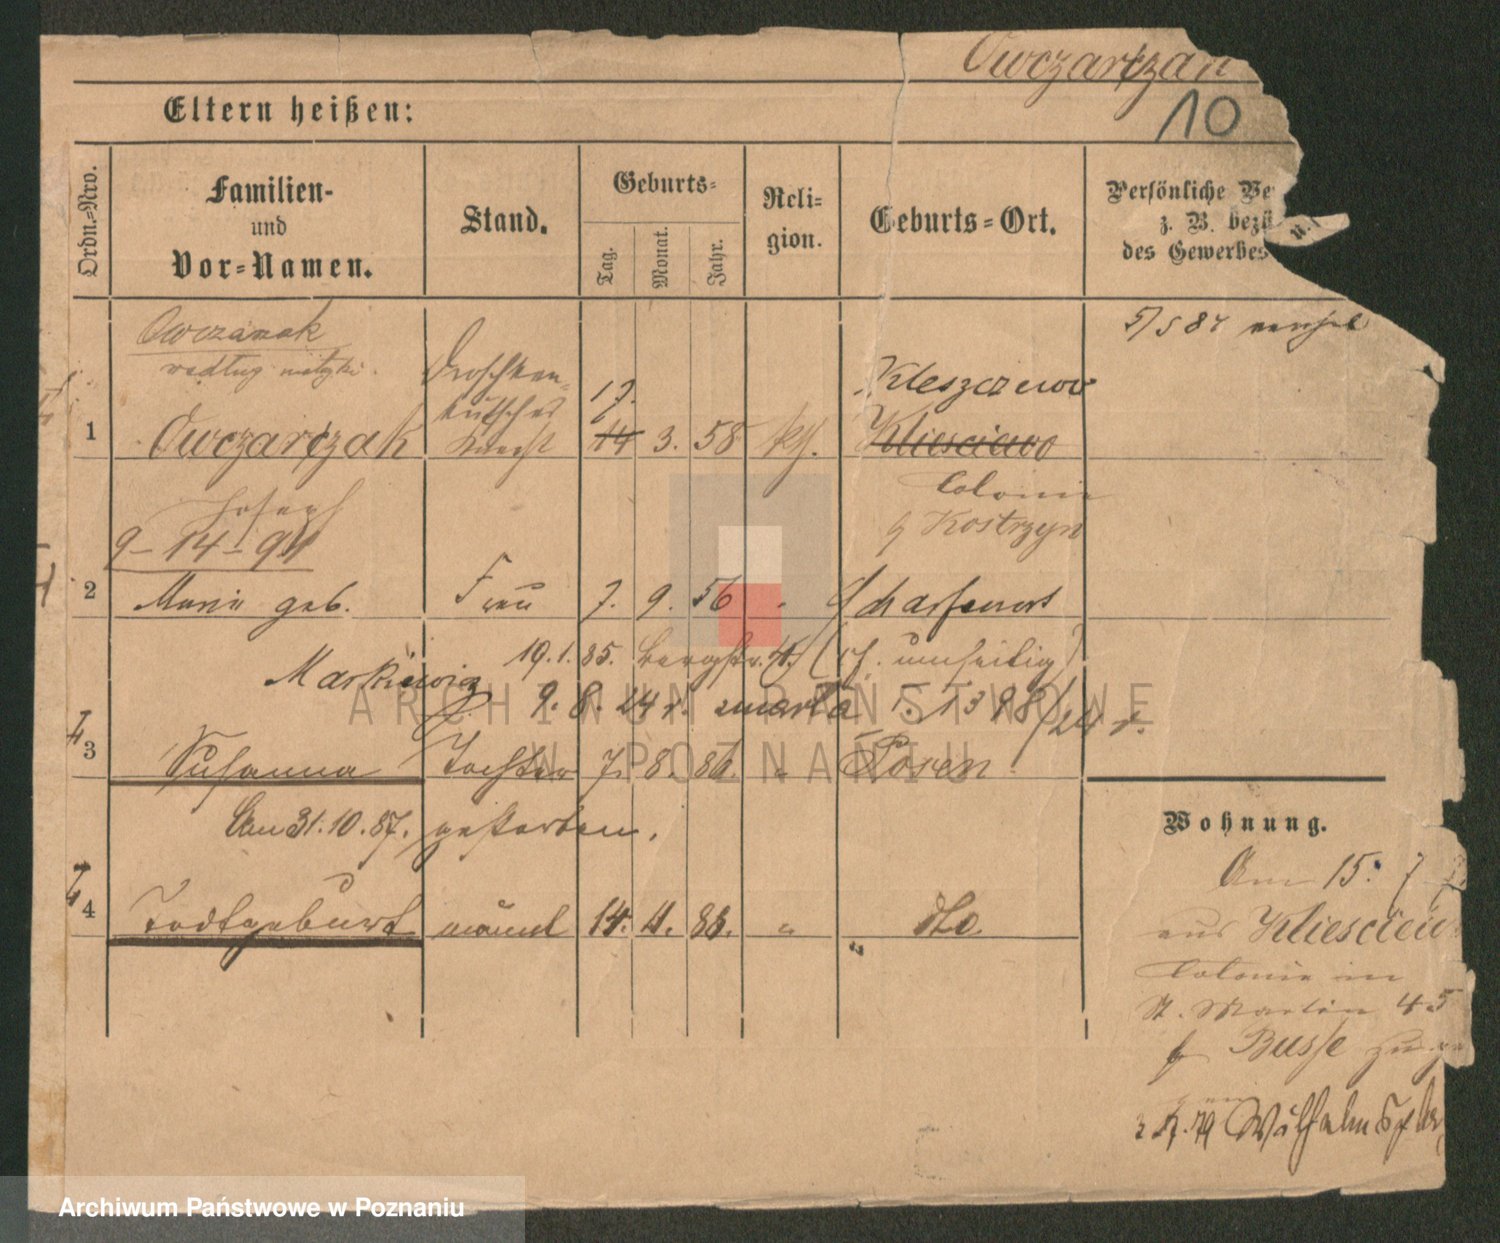 Owczarczak
10
Eltern heißen:
Ordn.=Nro.
Familien-
und
Vor=Namen.
Stand.
Geburts=
Tag.
Monat.
Jahr.
Reli=
gion.
Geburts=Ort.
Persönliche
z. B.
des Gewerbes
Owczarak
według metryki.
Droschken=
kutscher
Knecht
1
Owczarczak
17.
14 3. 58 kth.
Kleszczewo
Kliesciewo
Colonie
b Kostrzyn
Joseph
9-14-91
2
Marie geb.
Frau
7. 9. 56 "
Scharfenort
Markiewicz
19.1.85. Bergstr. 4. (cf. umseitig)
9. 8. 24 r. zmarła T. 1398/24 r.
3
Susanna
Tochter
7. 8. 86. "
Posen
Am 31.10.87. gestorben.
4
Todtgeburt
männl
14. 4. 88. "
dto.
Wohnung.
Am 15. 7
aus Kliesciew
Colonie in
St. Martin 45
b Busse
Wilhelm
Archiwum Państwowe w Poznaniu
ARCHIWUM PAŃSTWOWE
W POZNANIU